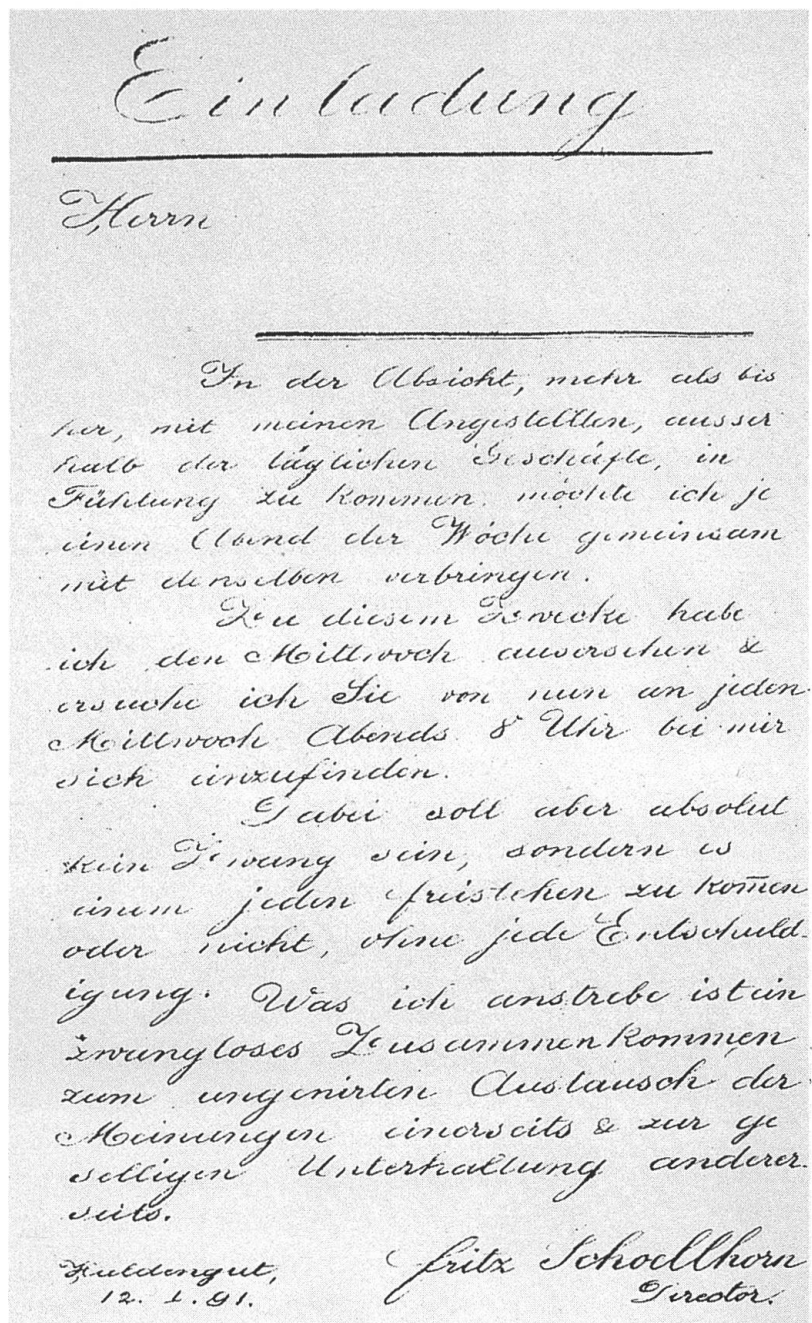 Einladung
Herrn
In der Absicht, mehr als bis
her, mit meinen Angestellten, ausser
halb der täglichen Geschäfte, in
Fühlung zu kommen möchte ich je
einen Abend der Woche gemeinsam
mit denselben verbringen.
Zu diesem Zwecke habe
ich den Mittwoch ausersehen &
ersuche ich Sie von nun an jeden
Mittwoch Abends 8 Uhr bei mir
sich einzufinden.
Dabei soll aber absolut
kein Zwang sein, sondern es
einem jeden freistehen zu kom̅en
oder nicht, ohne jede Entschuld-
igung. Was ich anstrebe ist ein
zwangloses Zusammenkommen
zum ungenirten Austausch der
Meinungen einerseits & zur ge
selligen Unterhaltung anderer-
seits.
Haldengut,
12. I. 91.
Fritz Schoellhorn
Director.